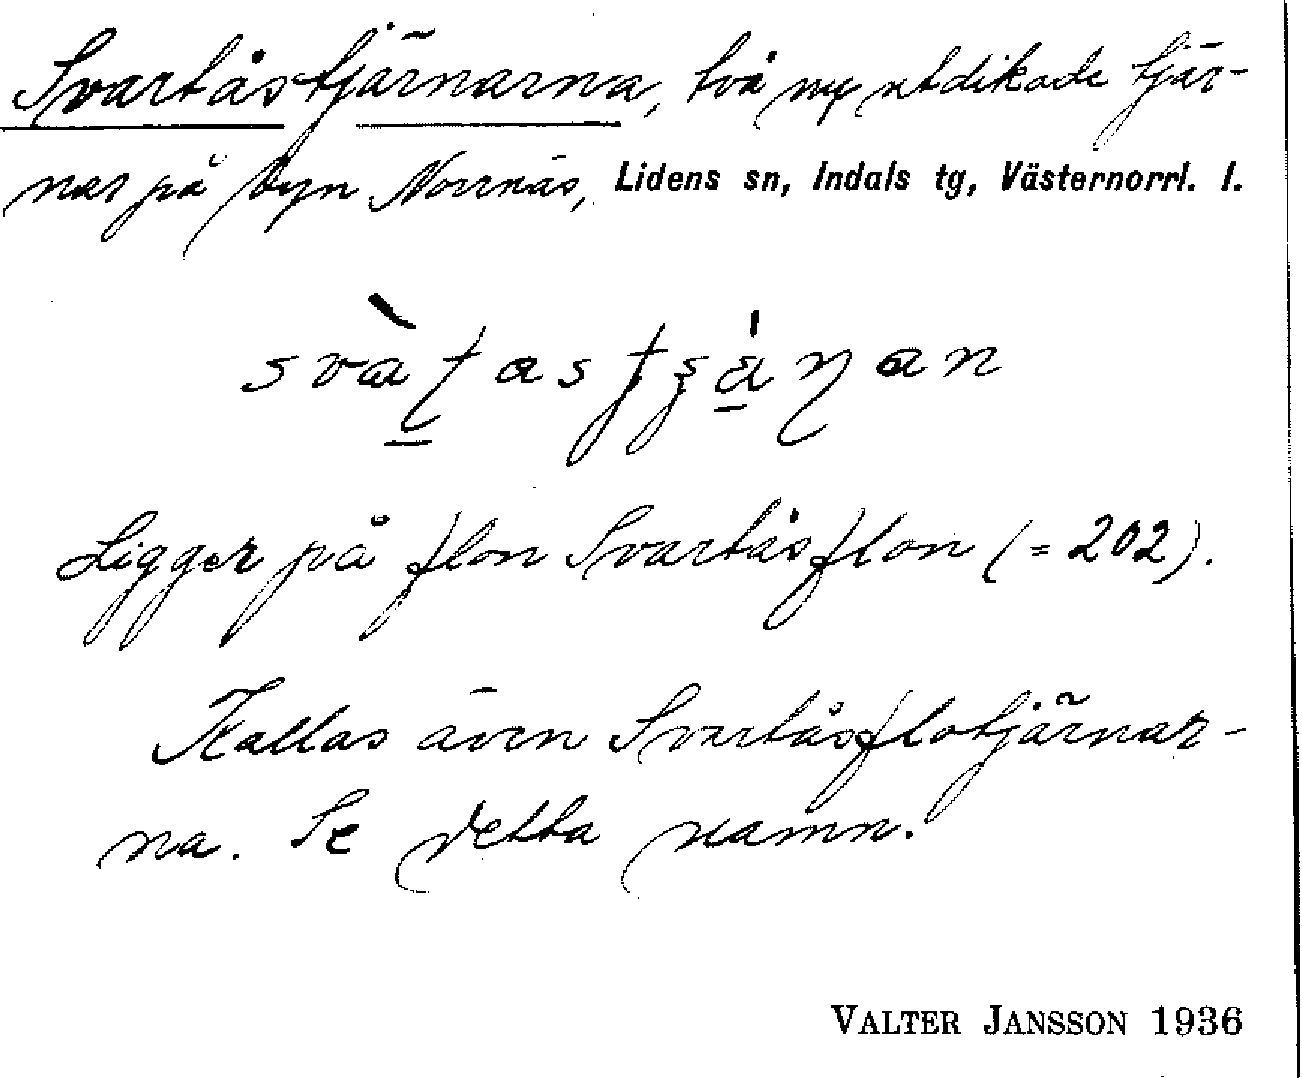 Svartåstjärnarna, två ny utdikade tjär-
nar på byn Norrnäs, Lidens sn, Indals tg, Västernorrl. l.
Ligger på flon Svartåsflon (= 202).
Kallas även Svartåsflotjärnar-
na. Se detta namn.
VALTER JANSSON 1936